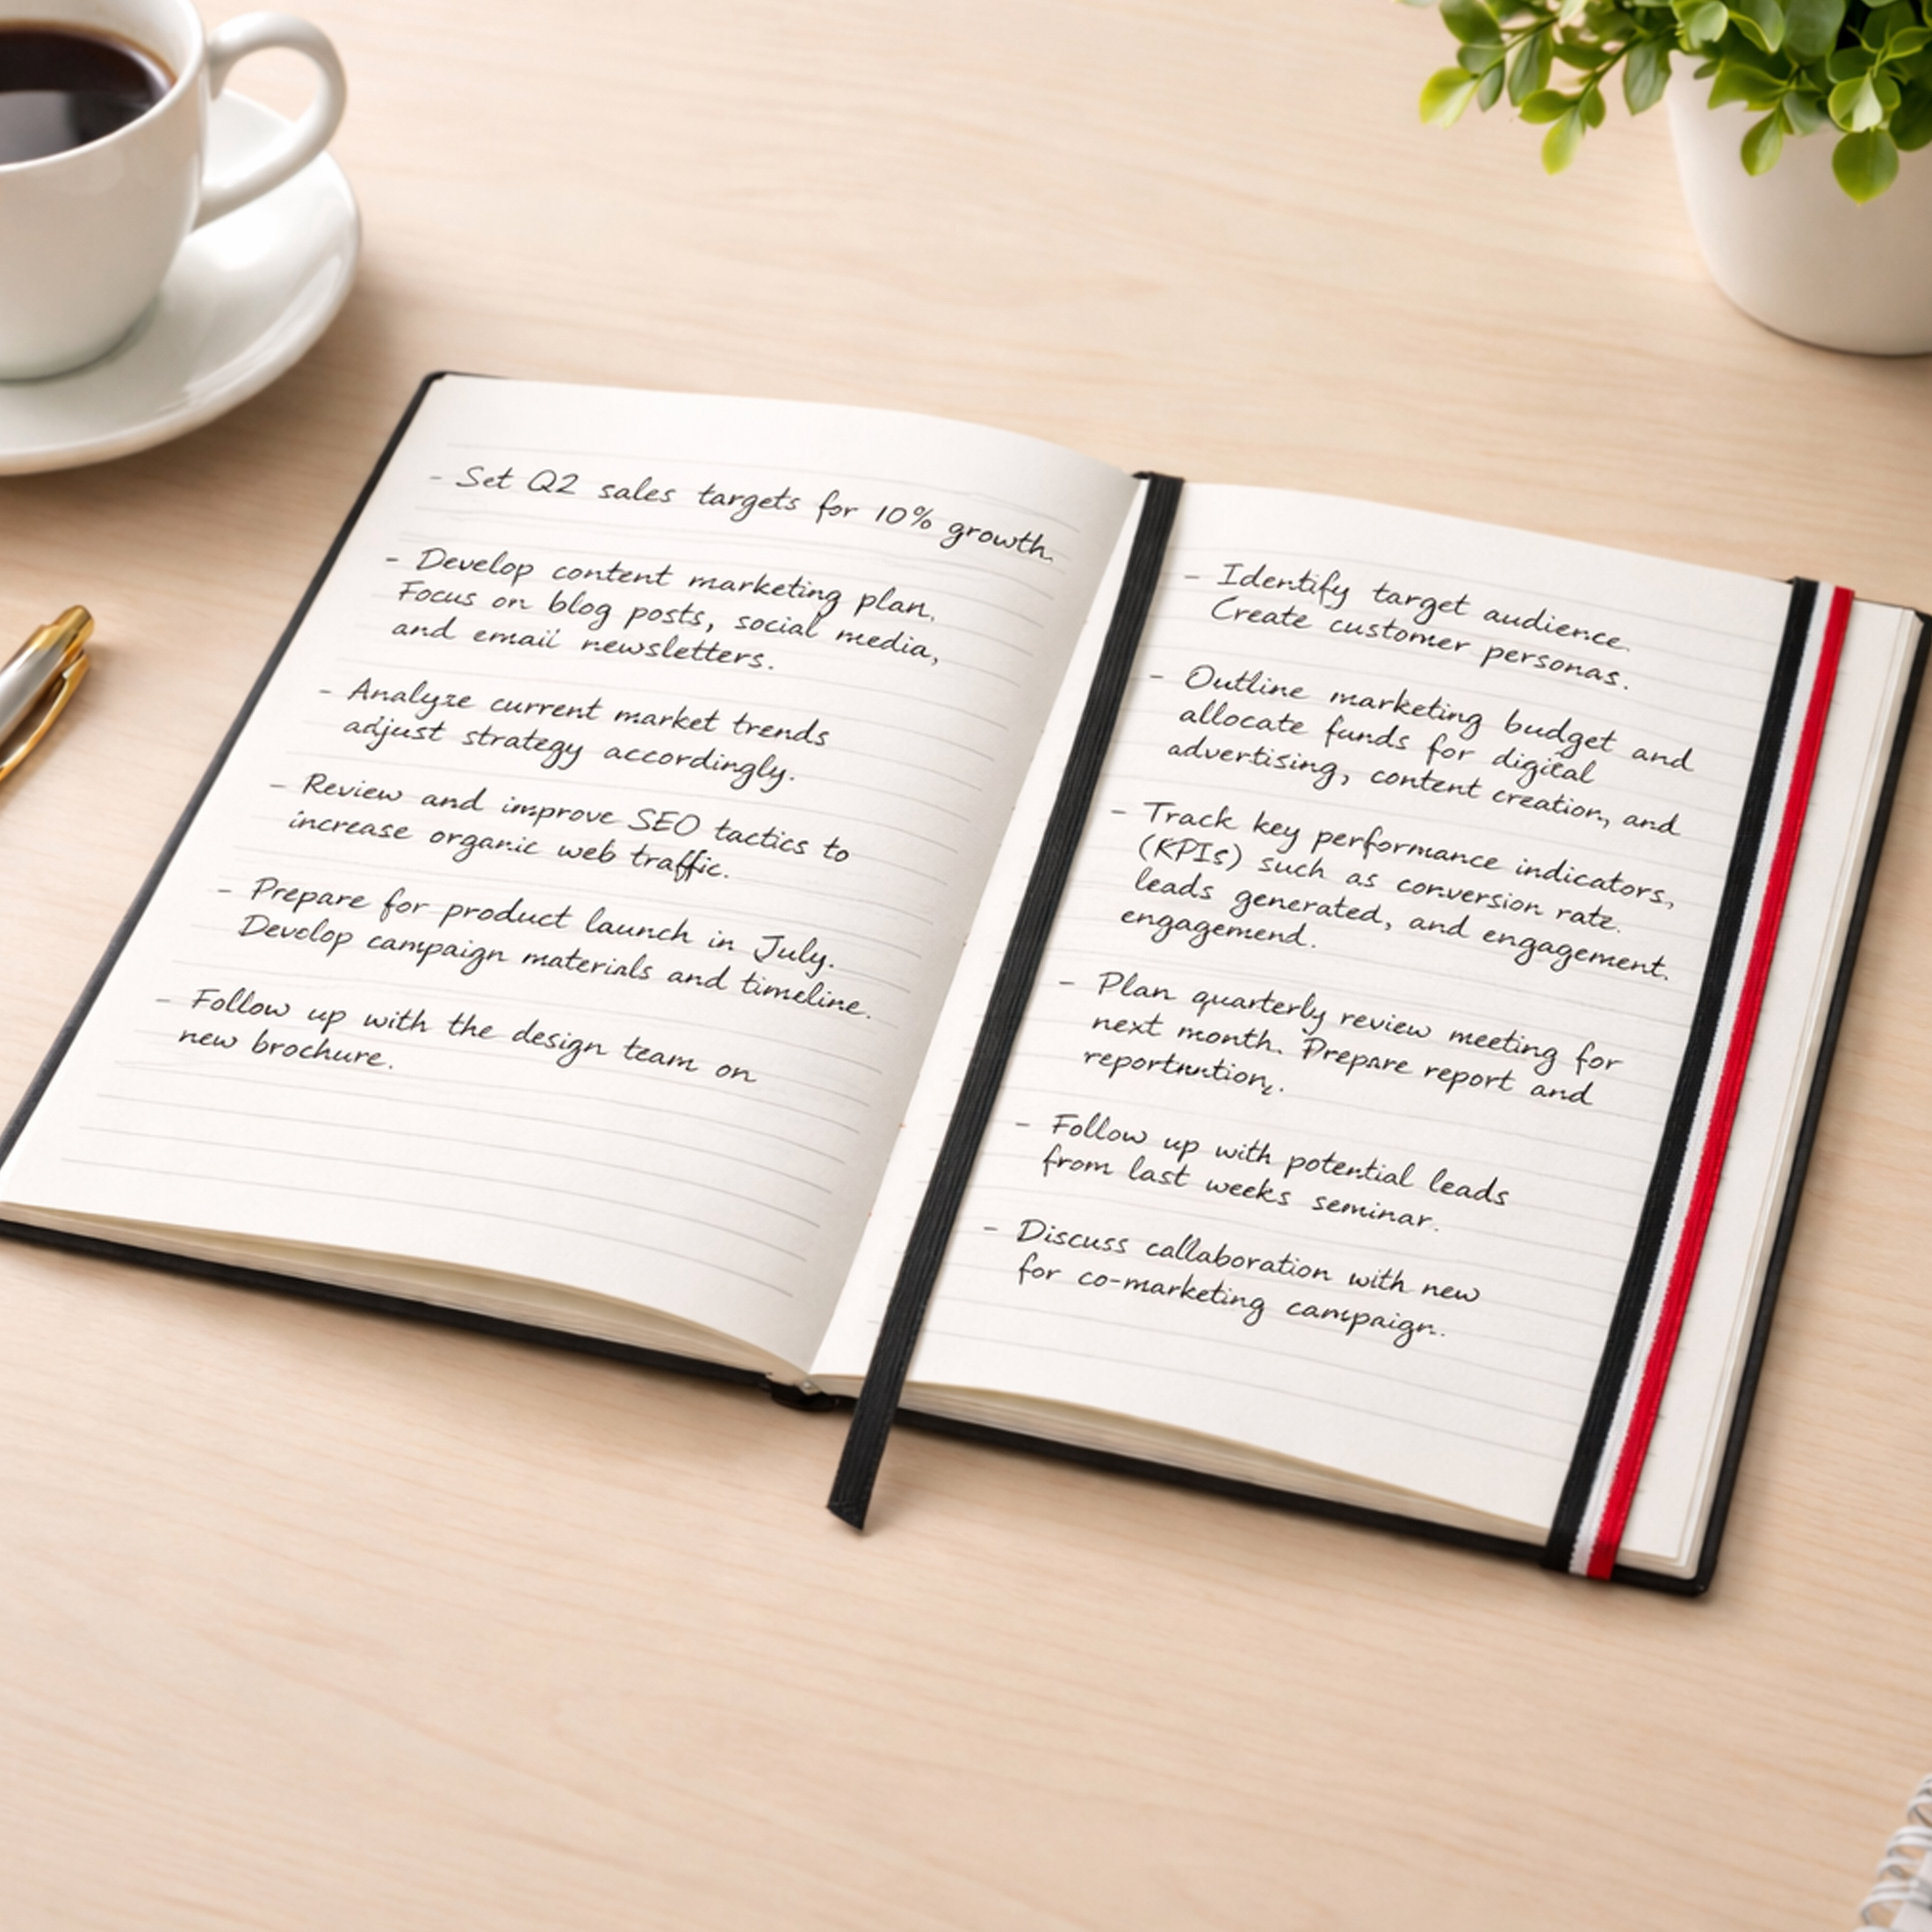 - Set Q2 sales targets for 10% growth.
- Develop content marketing plan.
Focus on blog posts, social media,
and email newsletters.
- Analyze current market trends
adjust strategy accordingly.
- Review and improve SEO tactics to
increase organic web traffic.
- Prepare for product launch in July.
Develop campaign materials and timeline.
- Follow up with the design team on
new brochure.
- Identify target audience.
Create customer personas.
- Outline marketing budget and
allocate funds for digital
advertising, content creation, and
- Track key performance indicators,
(KPIs) such as conversion rate.
leads generated, and engagement.
engagemend.
- Plan quarterly review meeting for
next month. Prepare report and
- Follow up with potential leads
from last weeks seminar.
- Discuss callaboration with new
for co-marketing campaign.